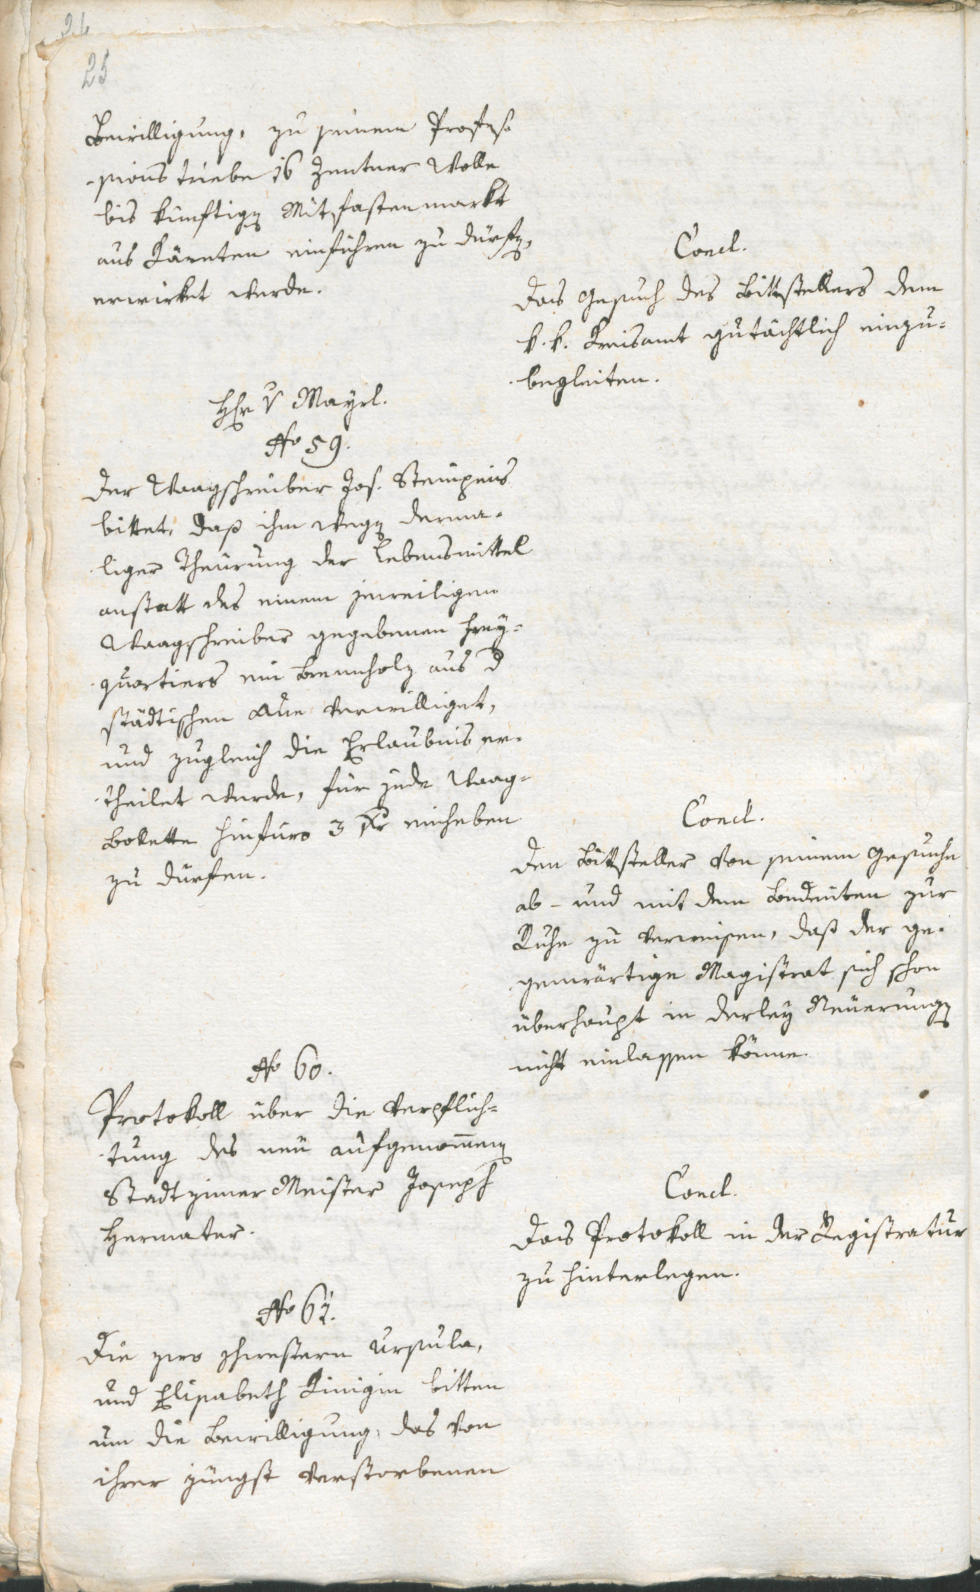 26
25
Bewilligung, zu seinem Profes-
sions triebe 16 Zentner Wolle
bis künftigen Mitfastenmarkt
aus Kärnten einführen zu dürfen,
erwirket werde.
Concl.
Das Gesuch des Bittstellers dem
k. k. Kreisamt gutächtlich einzu-
begleiten.
Hr v Mayrl.
No 59.
Der Waagschreiber Jos.
bittet, daß ihm wegen derma-
liger Theurung der Lebensmittel
anstatt des einem jeweiligen
Waagschreiber gegebenen Frey-
quartiers ein Brennholz aus d
städtischen Aue verwilliget,
und zugleich die Erlaubnis er-
theilet werde, für jede Waag-
Bolette hinfüro 3 kr einheben
zu dürfen.
Concl.
Den Bittsteller von seinem Gesuche
ab- und mit dem Bedeuten zur
Ruhe zu verweisen, daß der ge-
genwärtige Magistrat sich schon
überhaupt in derley Neuerungen
nicht einlassen könne.
No 60.
Protokoll über die Verpflich-
tung des neu aufgenommenen
Stadtzimer Meister Joseph
Hermater.
Concl.
Das Protokoll in der Registratur
zu hinterlegen.
No 61.
Die zwo Schwestern Ursula,
und Elisabeth Kinigin bitten
um die Bewilligung, das von
ihrer jüngst verstorbenen